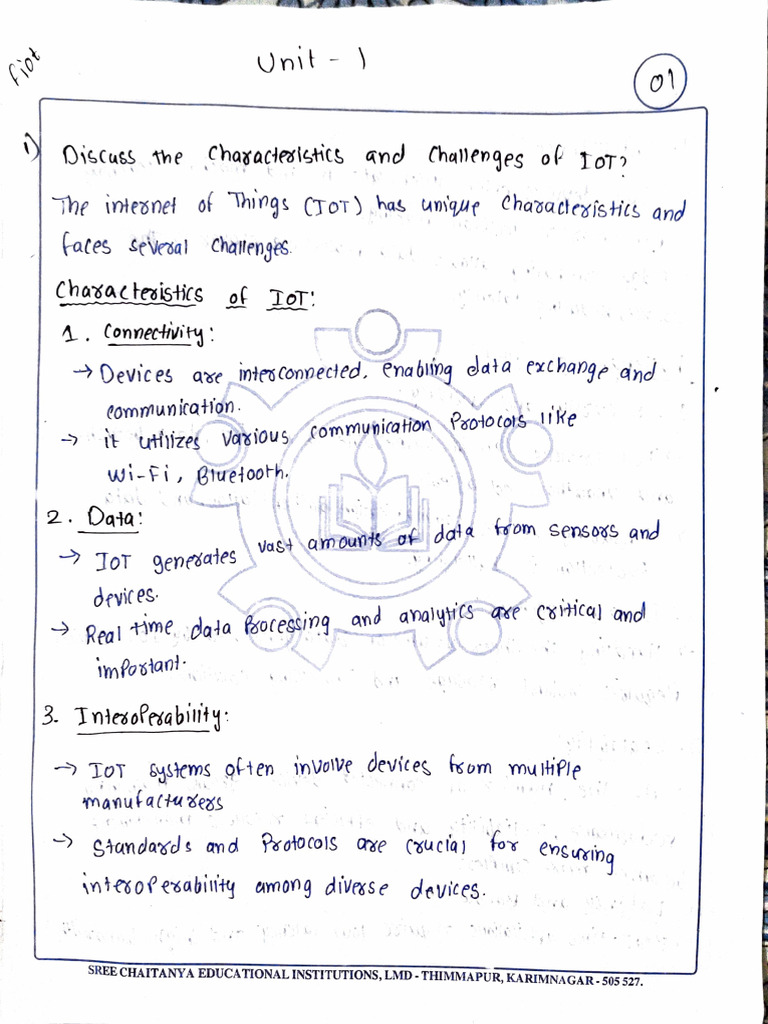 fiot
Unit - 1
01
1) Discuss the Characteristics and Challenges of IOT?
The internet of Things (IOT) has unique characteristics and
faces several challenges.
Characteristics of IOT:
1. Connectivity:
→ Devices are interconnected, enabling data exchange and
communication.
→ it utilizes various communication Protocols like
Wi-Fi, Bluetooth.
2. Data:
→ IOT generates vast amounts of data from sensors and
devices.
→ Real time data Processing and analytics are critical and
important.
3. Interoperability:
→ IOT systems often involve devices from multiple
manufacturers
→ Standards and Protocols are crucial for ensuring
interoperability among diverse devices.
SREE CHAITANYA EDUCATIONAL INSTITUTIONS, LMD - THIMMAPUR, KARIMNAGAR - 505 527.